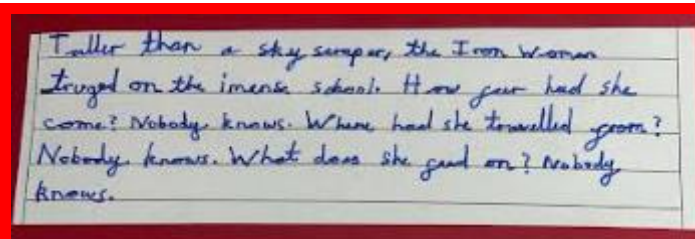 Taller than a sky scraper, the Iron Woman
truged on the imense school. How far had she
come? Nobody knows. Where had she travelled from?
Nobody knows. What does she feed on? Nobody
knows.